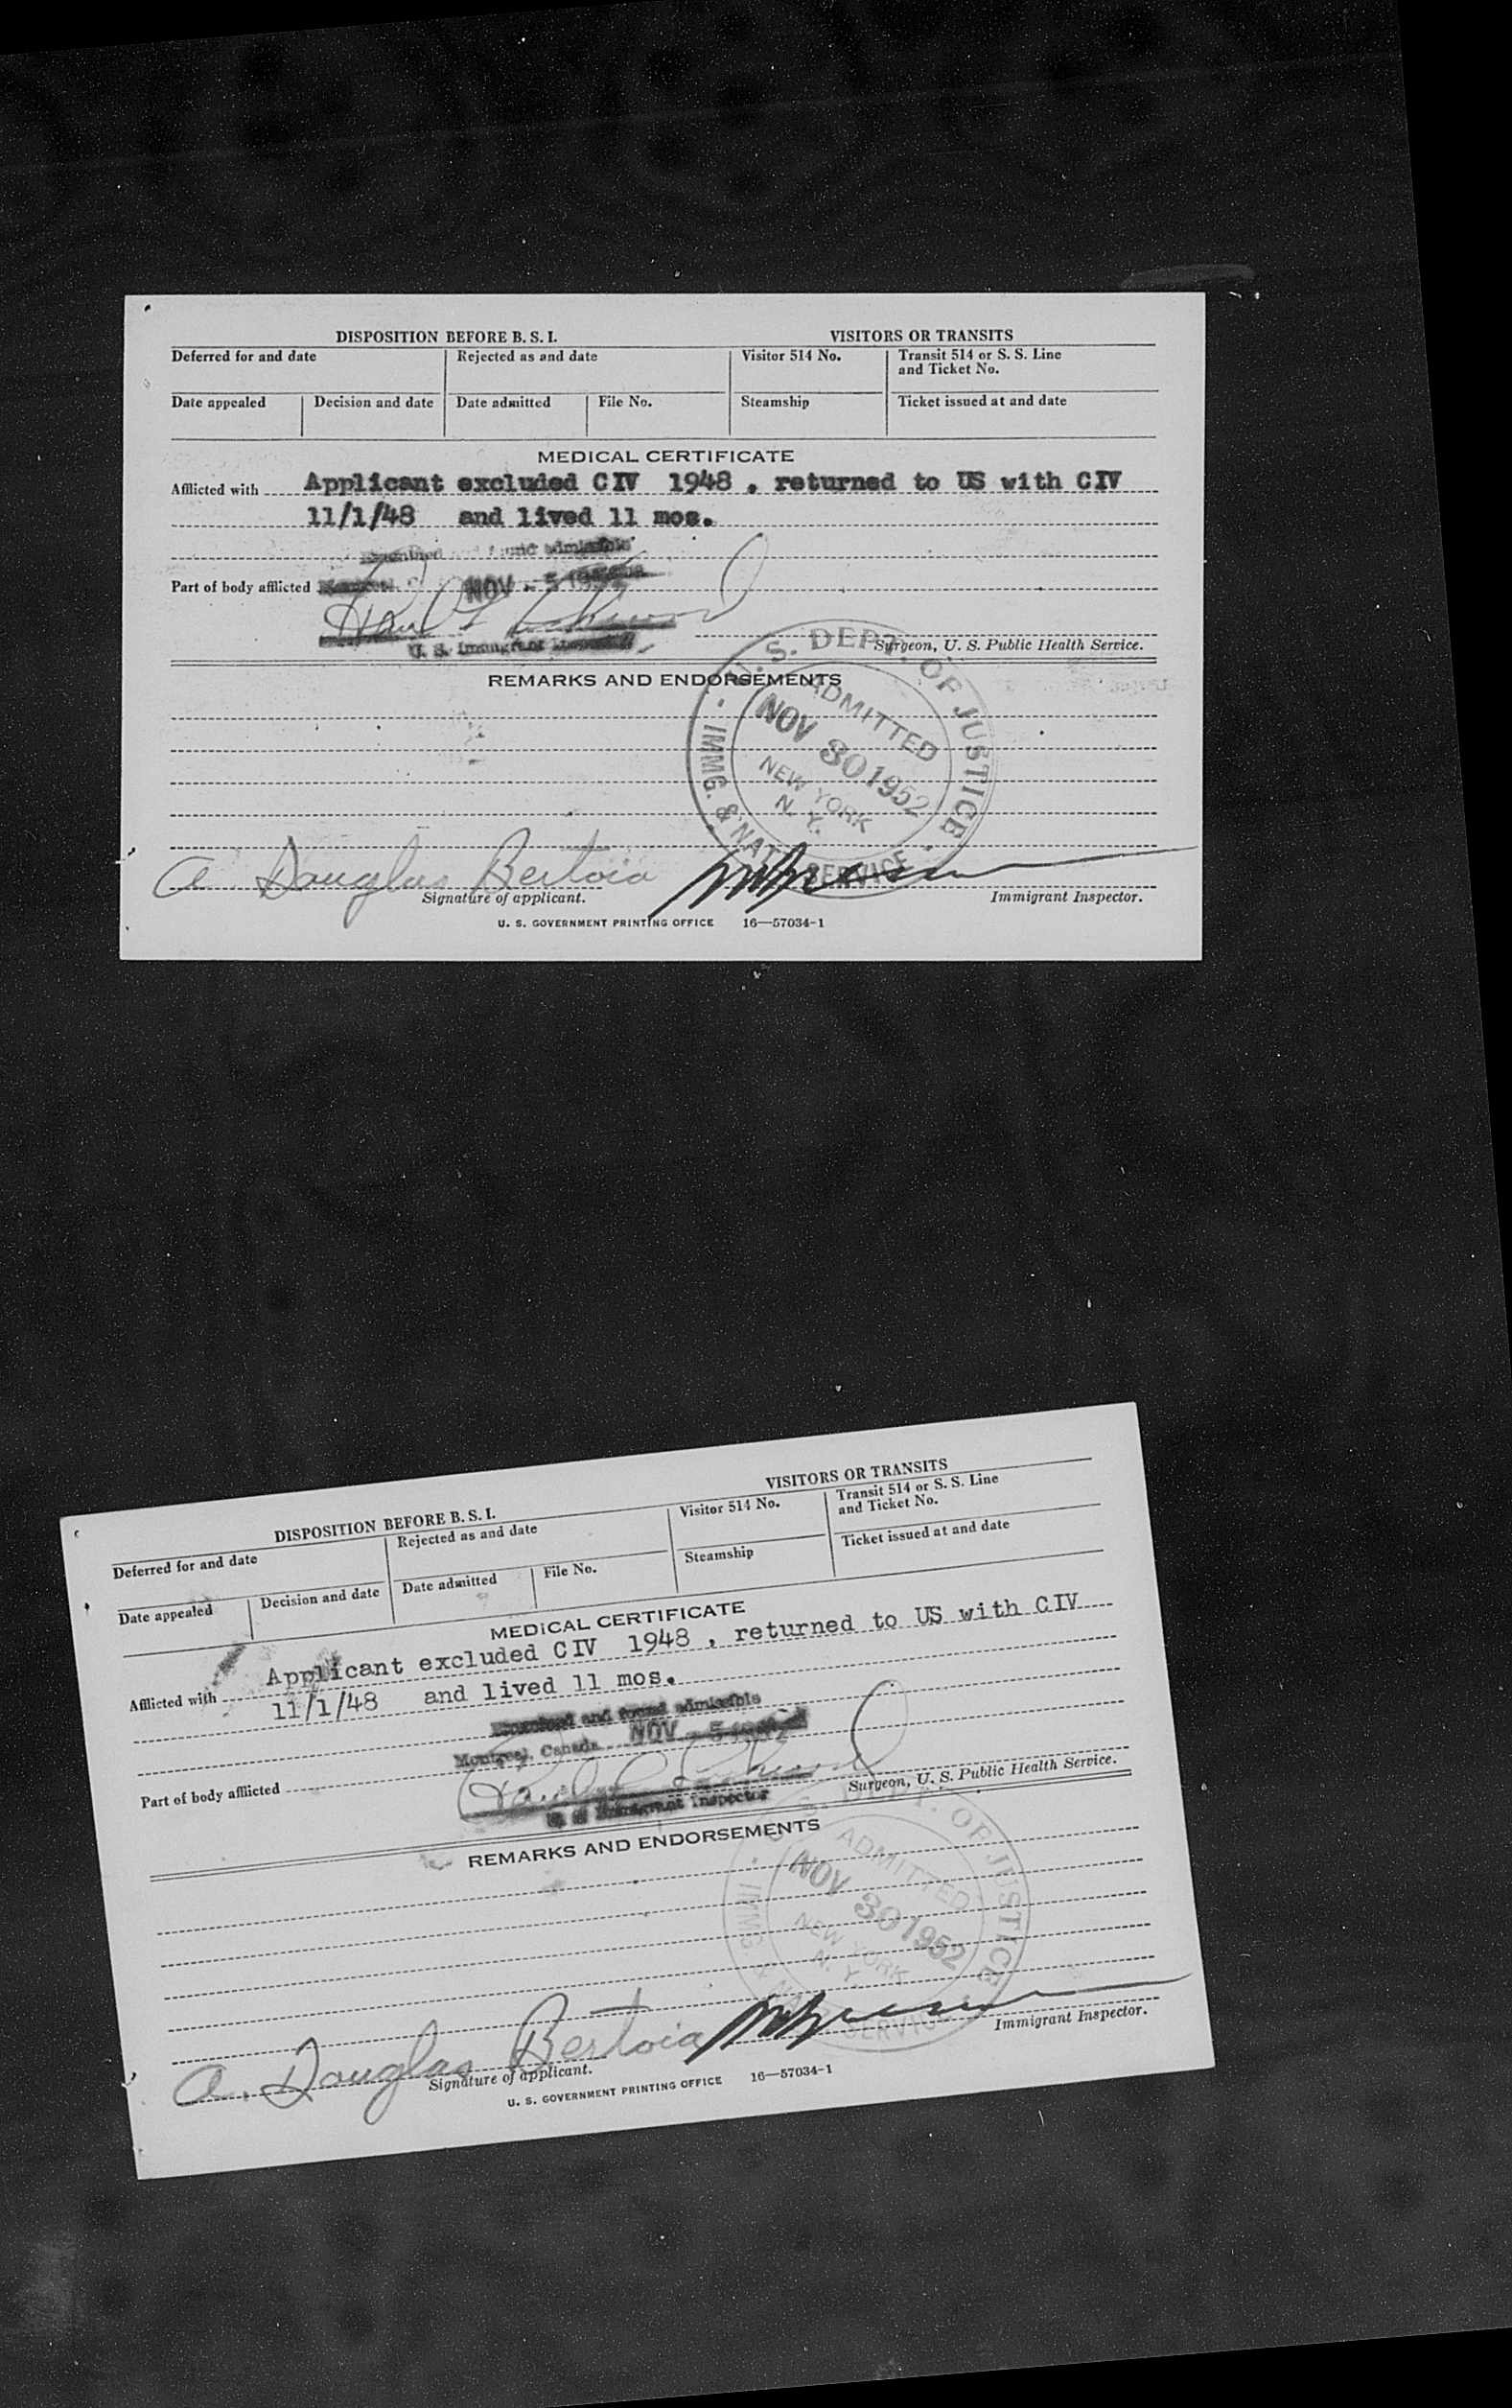 DISPOSITION BEFORE B. S. I.
VISITORS OR TRANSITS
Deferred for and date
Rejected as and date
Visitor 514 No.
Transit 514 or S. S. Line
and Ticket No.
Date appealed
Decision and date
Date admitted
File No.
Steamship
Ticket issued at and date
MEDICAL CERTIFICATE
Afflicted with Applicant excluded CIV 1948 , returned to US with CIV
11/1/48 and lived 11 mos.
found admissible
Part of body afflicted
NOV - 5 1952
U. S. Immigrant
Surgeon, U. S. Public Health Service.
REMARKS AND ENDORSEMENTS
U. S. DEPT. OF JUSTICE
ADMITTED
NOV 30 1952
NEW YORK
N. Y.
IMMG. & NATZ SERVICE
A. Douglas Bertoia
Signature of applicant.
Immigrant Inspector.
U. S. GOVERNMENT PRINTING OFFICE 16—57034-1
DISPOSITION BEFORE B. S. I.
VISITORS OR TRANSITS
Deferred for and date
Rejected as and date
Visitor 514 No.
Transit 514 or S. S. Line
and Ticket No.
Date appealed
Decision and date
Date admitted
File No.
Steamship
Ticket issued at and date
MEDICAL CERTIFICATE
Afflicted with Applicant excluded CIV 1948 , returned to US with CIV
11/1/48 and lived 11 mos.
Examined and found admissible
Montreal, Canada NOV - 5 1952
Part of body afflicted
U S Immigrant Inspector
Surgeon, U. S. Public Health Service.
REMARKS AND ENDORSEMENTS
DEPT. OF JUSTICE
ADMITTED
NOV 30 1952
NEW YORK
N. Y.
IMMG. & SERVICE
A. Douglas Bertoia
Signature of applicant.
Immigrant Inspector.
U. S. GOVERNMENT PRINTING OFFICE 16—57034-1